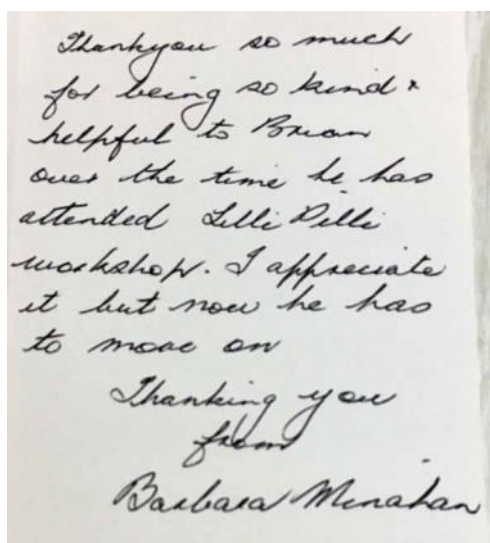 Thankyou so much
for being so kind &
helpful to Brian
over the time he has
attended Lilli Pilli
workshop. I appreciate
it but now he has
to move on
Thanking you
from
Barbara Minahan